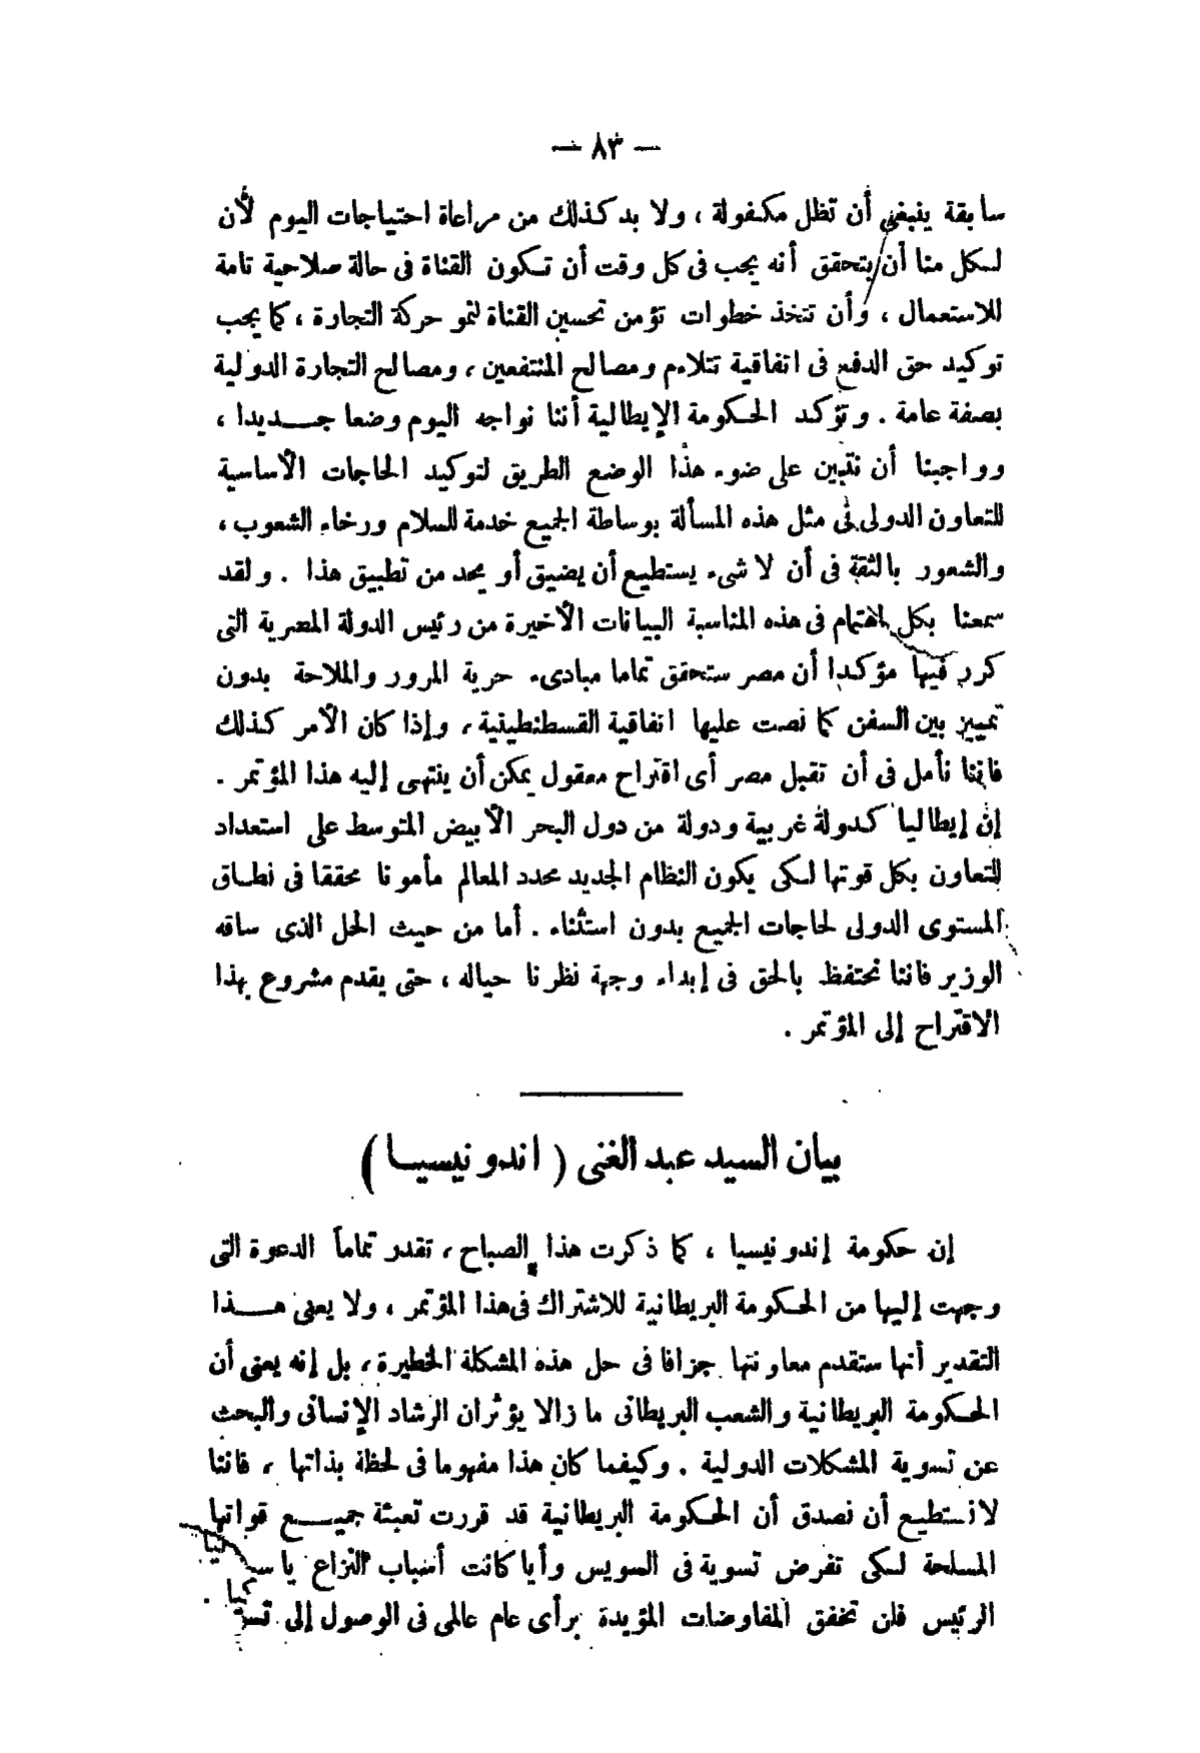 — ٨٣ —
سابقة ينبغى أن تظل مكفولة ، ولا بد كذلك من مراعاة احتياجات اليوم لأن
لكل منا أن يتحقق أنه يجب فى كل وقت أن تكون القناة فى حالة صلاحية تامة
للاستعمال ، وأن تتخذ خطوات تؤمن تحسين القناة لنمو حركة التجارة ، كما يجب
توكيد حق الدفع فى اتفاقية تتلاءم ومصالح المنتفعين ، ومصالح التجارة الدولية
بصفة عامة . وتؤكد الحكومة الإيطالية أننا نواجه اليوم وضعا جديدا ،
وواجبنا أن نتبين على ضوء هذا الوضع الطريق لتوكيد الحاجات الأساسية
للتعاون الدولى فى مثل هذه المسألة بوساطة الجميع خدمة للسلام ورخاء الشعوب ،
والشعور بالثقة فى أن لا شىء يستطيع أن يضيق أو يحد من تطبيق هذا . ولقد
سمعنا بكل اهتمام فى هذه المناسبة البيانات الأخيرة من رئيس الدولة المصرية التى
كرر فيها مؤكدا أن مصر ستحقق تماما مبادىء حرية المرور والملاحة بدون
تمييز بين السفن كما نصت عليها اتفاقية القسطنطينية ، وإذا كان الأمر كذلك
فاننا نأمل فى أن تقبل مصر أى اقتراح معقول يمكن أن ينتهى إليه هذا المؤتمر .
إن إيطاليا كدولة غربية ودولة من دول البحر الأبيض المتوسط على استعداد
للتعاون بكل قوتها لكى يكون النظام الجديد محدد المعالم مأمونا محققا فى نطاق
المستوى الدولى لحاجات الجميع بدون استثناء . أما من حيث الحل الذى ساقه
الوزير فاننا نحتفظ بالحق فى إبداء وجهة نظرنا حياله ، حتى يقدم مشروع بهذا
الاقتراح إلى المؤتمر .
بيان السيد عبد الغنى ( اندونيسيا )
إن حكومة إندونيسيا ، كما ذكرت هذا الصباح ، تقدر تماماً الدعوة التى
وجهت إليها من الحكومة البريطانية للاشتراك فى هذا المؤتمر ، ولا يعنى هذا
التقدير أنها ستقدم معاونتها جزافا فى حل هذه المشكلة الخطيرة ، بل إنه يعنى أن
الحكومة البريطانية والشعب البريطانى ما زالا يؤثران الرشاد الإنسانى والبحث
عن تسوية المشكلات الدولية . وكيفما كان هذا مفهوما فى لحظة بذاتها ، فاننا
لا نستطيع أن نصدق أن الحكومة البريطانية قد قررت تعبئة جميع قواتها
المسلحة لكى تفرض تسوية فى السويس وأيا كانت أسباب النزاع يا
الرئيس فلن تخفق المفاوضات المؤيدة برأى عام عالمى فى الوصول إلى